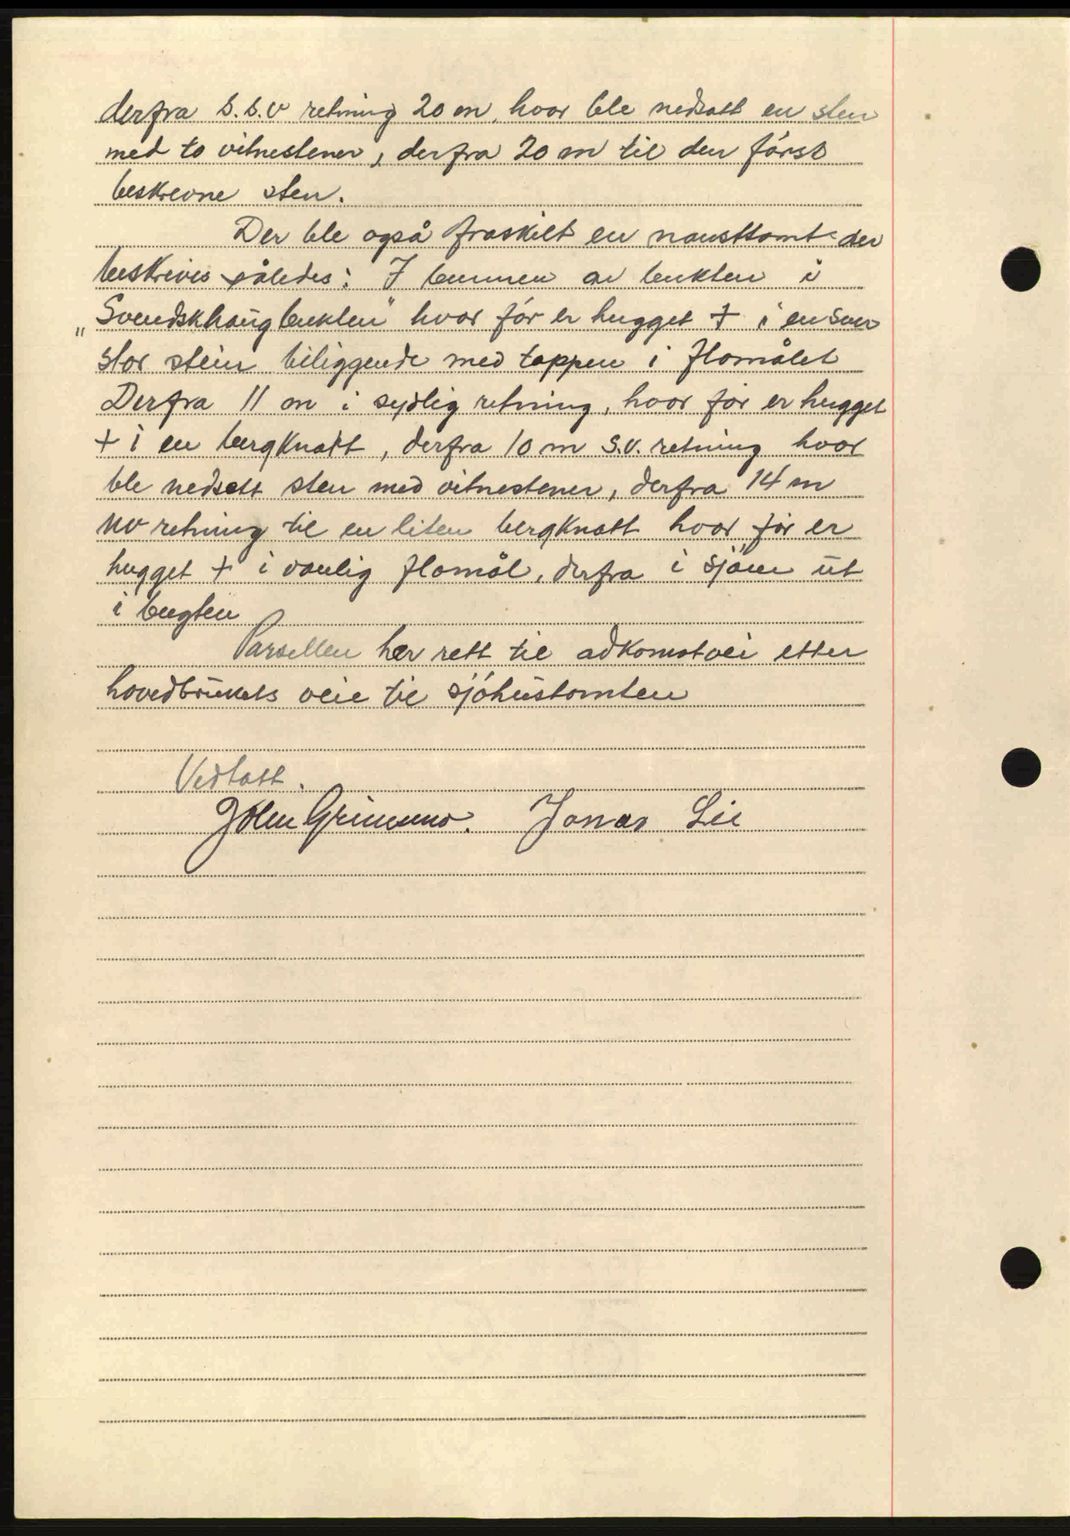 derfra S.S.V retning 20 m. hvor ble nedsatt en sten
med to vitnestener, derfra 20 m til den först
beskrevne sten.
Der ble også fraskilt en nausttomt der
beskrives således: I bunnen av bukten i
"Svendskhaugbukten" hvor för er hugget + i en svær
stor stein beliggende med toppen i flomålet
Derfra 11 m i sydlig retning, hvor för er hugget
+ i en bergknatt, derfra 10 m S.V. retning hvor
ble nedsatt sten med vitnestener, derfra 14 m
NV retning til en liten bergknatt hvor för er
hugget + i vanlig flomål, derfra i sjöen ut
i bugten
Parsellen her rett til adkomstvei etter
hovedbrukets veie til sjöhustomten
Vedtatt.
John Jonas Lie